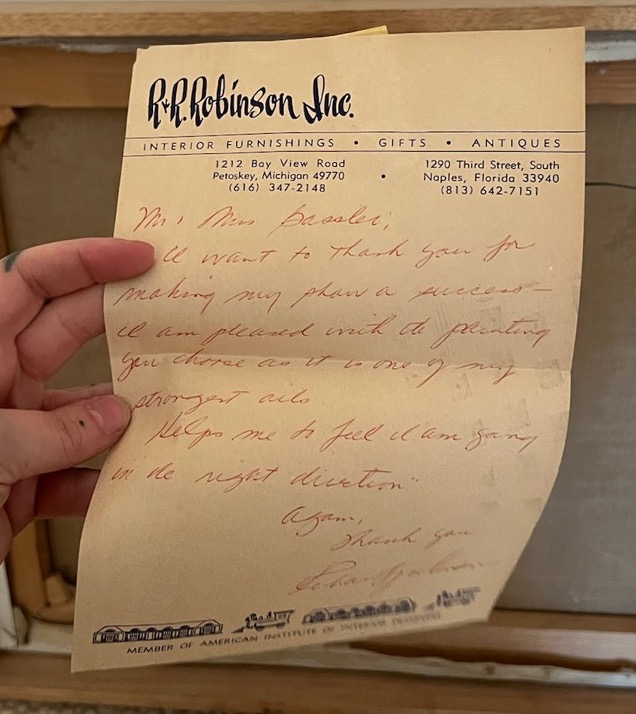 R. & R. Robinson Inc.
INTERIOR FURNISHINGS • GIFTS • ANTIQUES
1212 Bay View Road
Petoskey, Michigan 49770
(616) 347-2148
•
1290 Third Street, South
Naples, Florida 33940
(813) 642-7151
Mr, Mrs
I want to thank you for
making my show a success—
I am pleased with the painting
you choose as it is one of my
strongest oils
Helps me to feel I am going
in the right direction"
Again,
Thank you
MEMBER OF AMERICAN INSTITUTE OF INTERIOR DESIGNERS